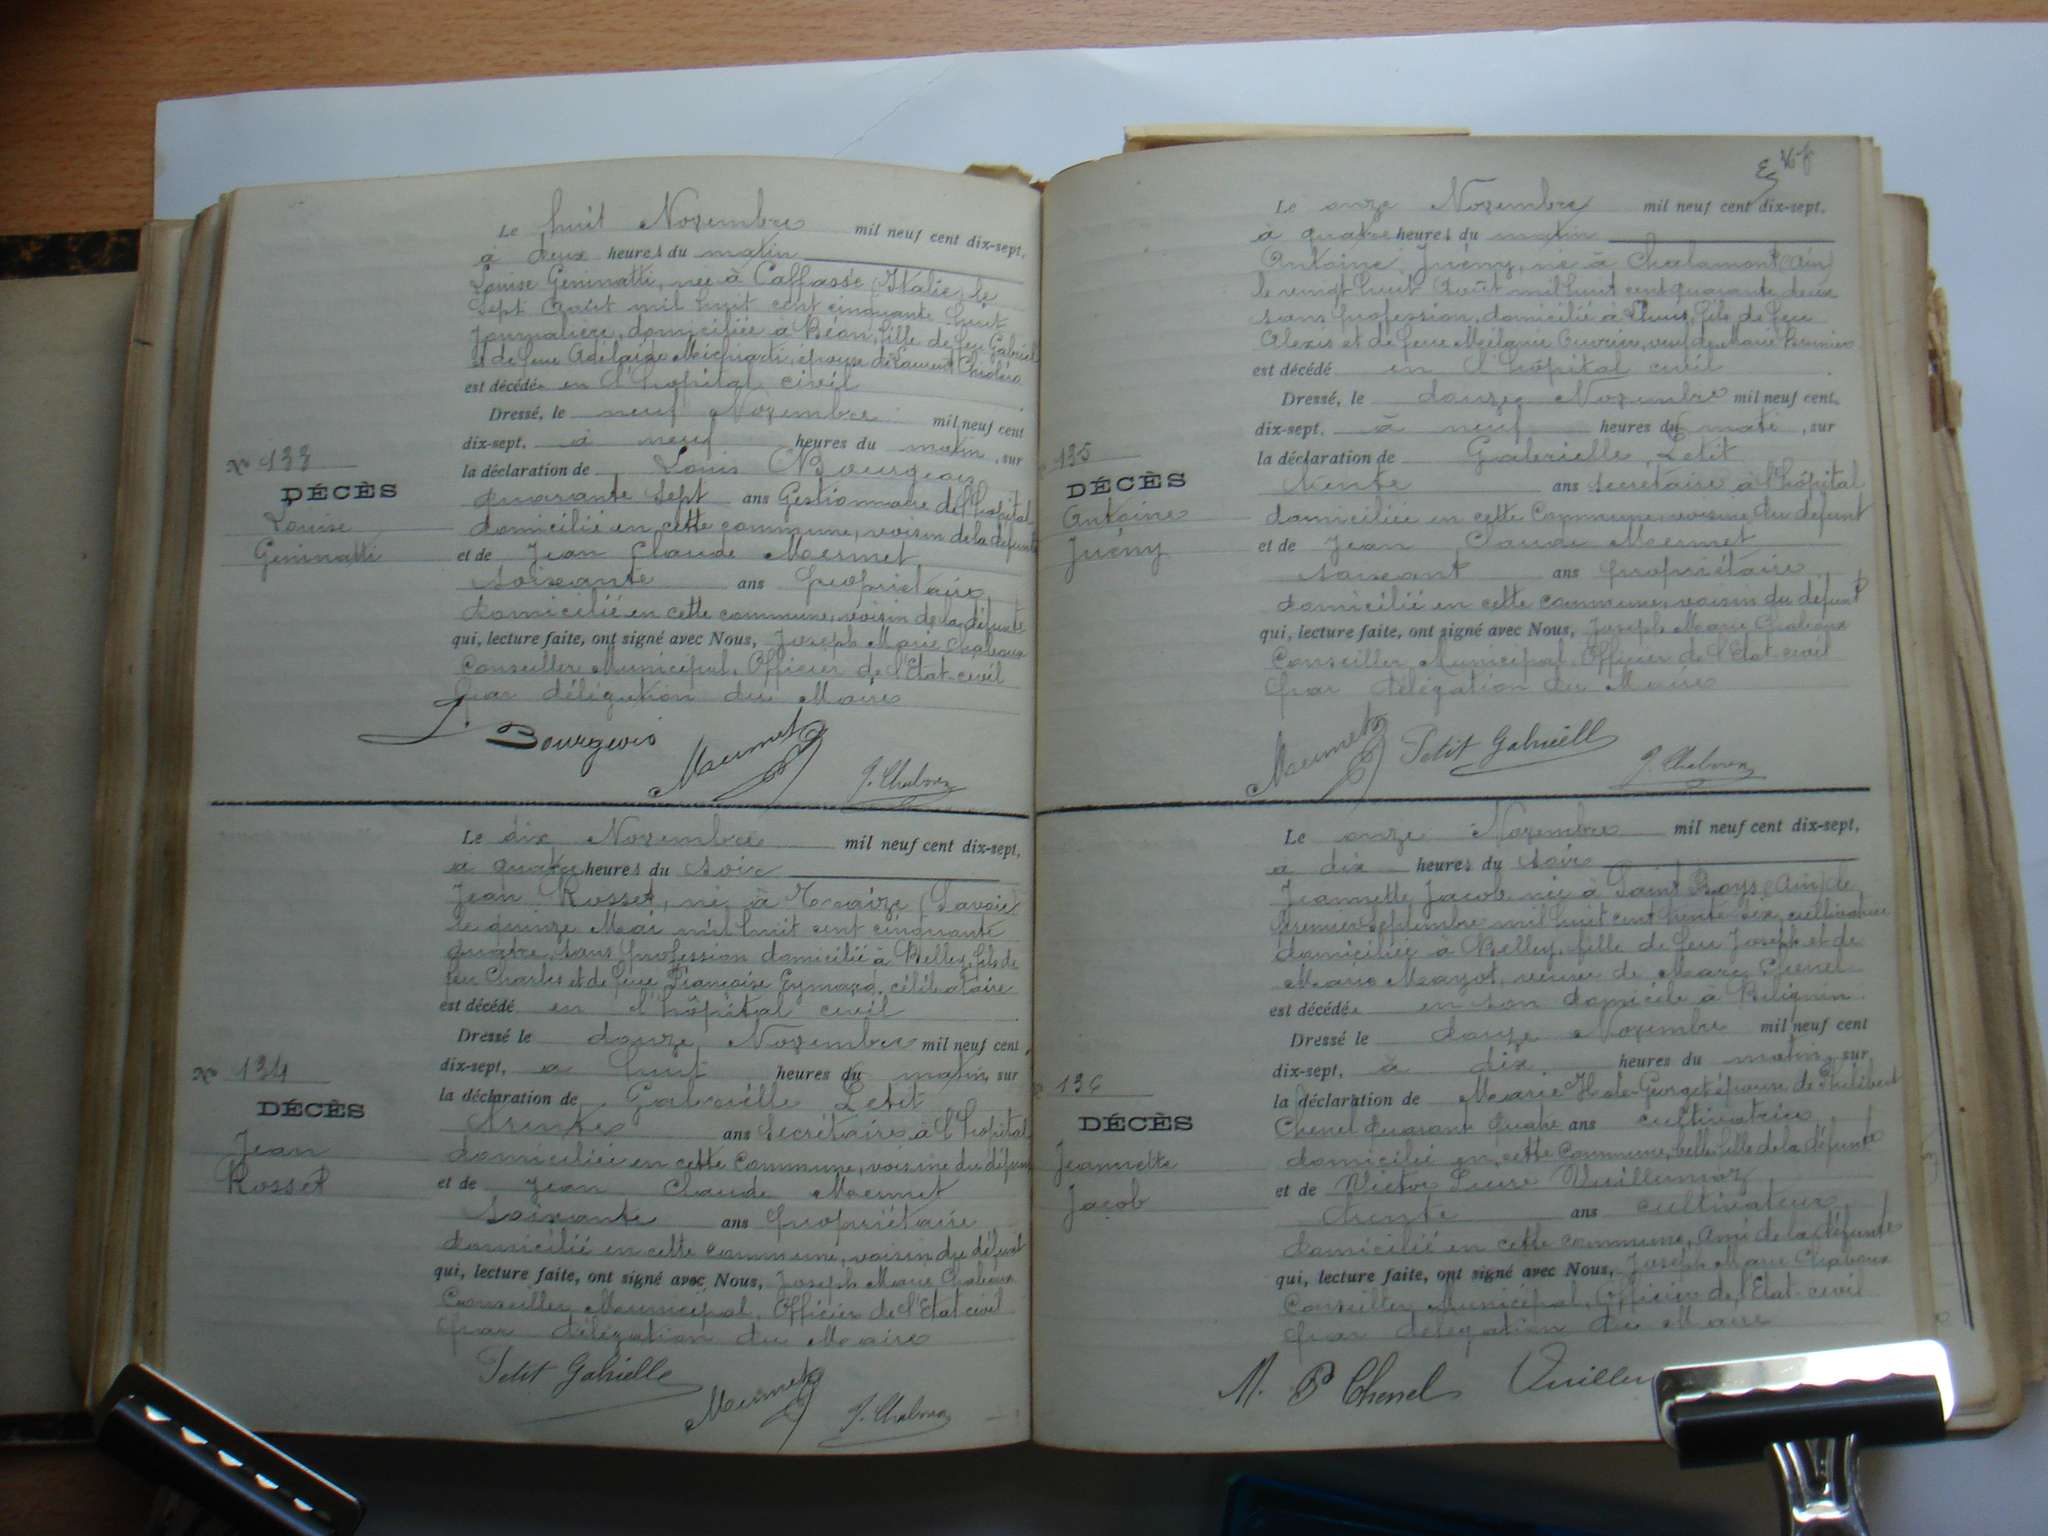 Le huit Novembre mil neuf cent dix-sept,
à deux heures du matin
Louise Geninatti, née à Caffasse (Italie) le
sept Août mil huit cent cinquante huit
Journalière, domiciliée à Béon, fille de feu Gabriel
et de feue Adelaide épouse de Laurent
est décédée en l'hopital civil
Dressé, le neuf Novembre mil neuf cent
dix-sept, à neuf heures du matin, sur
la déclaration de Louis Bourgeois
quarante sept ans Gestionnaire de l'hopital
domicilié en cette commune, voisin de la défunte
et de Jean Claude Mermet
soixante ans propriétaire
domicilié en cette commune, voisin de la défunte
qui, lecture faite, ont signé avec Nous, Joseph Marie Chaboux
Conseiller Municipal, Officier de l'Etat-civil
par délégation du Maire
L. Bourgeois Mermet J. Chaboux
No 133
DÉCÈS
Louise
Geninatti
Le dix Novembre mil neuf cent dix-sept,
à quatre heures du soir
Jean Rosset, né à (Savoie)
le quinze Mai mil huit cent cinquante
quatre, sans profession domicilié à Belley, fils de
feu Charles et de feue Françoise Eymard, célibataire
est décédé en l'hôpital civil
Dressé le douze Novembre mil neuf cent,
dix-sept, à huit heures du matin, sur
la déclaration de Gabrielle Petit
trente ans Secrétaire à l'hopital
domiciliée en cette Commune, voisine du défunt
et de Jean Claude Mermet
soixante ans propriétaire
domicilié en cette commune, voisin du défunt
qui, lecture faite, ont signé avec Nous, Joseph Marie Chaboux
Conseiller Municipal, Officier de l'Etat-civil
par délégation du Maire
Petit Gabrielle Mermet J. Chaboux
No 134
DÉCÈS
Jean
Rosset
Le onze Novembre mil neuf cent dix-sept,
à quatre heures du matin
Antoine Juény, né à Chalamont (Ain)
le vingt huit Août mil huit cent quarante deux
sans profession, domicilié à fils de feu
Alexis et de feue Mélanie veuf de Marie
est décédé en l'hôpital civil
Dressé, le douze Novembre mil neuf cent,
dix-sept, à neuf heures du mati, sur
la déclaration de Gabrielle Petit
trente ans secrétaire à l'hôpital
domiciliée en cette Commune, voisine du défunt
et de Jean Claude Mermet
soixant ans propriétaire
domicilié en cette commune, voisin du défunt
qui, lecture faite, ont signé avec Nous, Joseph Marie Chaboux
Conseiller Municipal, Officier de l'Etat-civil
par délégation du Maire
Mermet Petit Gabrielle J. Chaboux
135
DÉCÈS
Antoine
Juény
Le onze Novembre mil neuf cent dix-sept,
à dix heures du soir
Jeannette Jacob née à Saint Boys (Ain) le
premier septembre mil huit cent trente six, cultivatrice
domiciliée à Belley, fille de feu Joseph et de
Marie Mayot, veuve de Marc Chenel
est décédée en son domicile à Bilignin
Dressé le douze Novembre mil neuf cent
dix-sept, à dix heures du matin, sur
la déclaration de Marie épouse de Philibert
Chenel quarant quatre ans cultivatrice
domicilié en cette Commune, belle fille de la défunte
et de Victor Pierre Vuillermoz
trente ans cultivateur
domicilié en cette commune, ami de la défunte
qui, lecture faite, ont signé avec Nous, Joseph Marie Chaboux
Conseiller Municipal, Officier de l'Etat-civil
par délégation du Maire
M. P Chenel Vuiller
136
DÉCÈS
Jeannette
Jacob